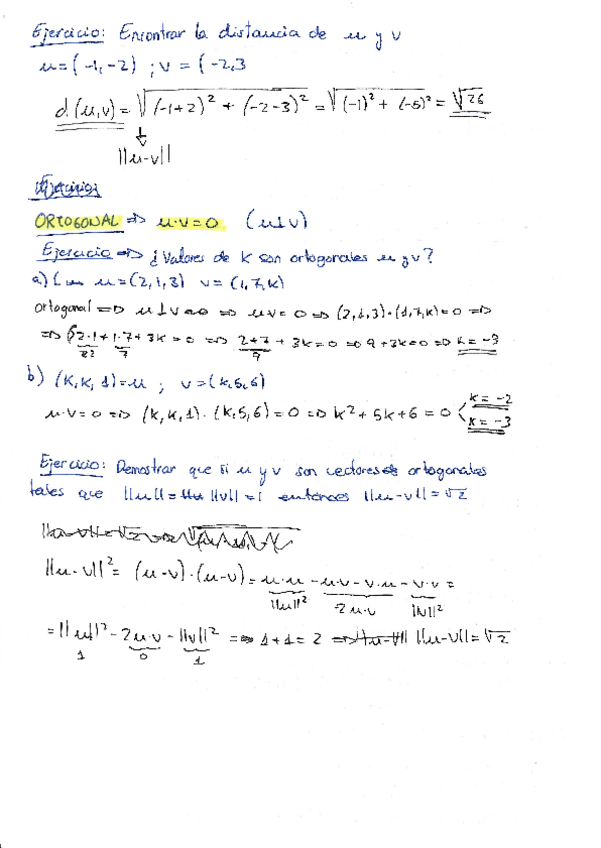 Ejercicio: Encontrar la distancia de u y v
u=(-1,-2) ; v = (-2,3
d(u,v) = √(-1+2)² + (-2-3)² = √(-1)² + (-5)² = √26
↓
||u-v||
ORTOGONAL ⇒ u·v=0 (u⊥v)
Ejercicio ⇒ ¿Valores de K son ortogonales u y v?
a) u=(2,1,3) v=(1,7,K)
Ortogonal ⇒ u⊥v ⇒ u·v=0 ⇒ (2,1,3)·(1,7,K)=0 ⇒
⇒ 2·1+1·7+3K=0 ⇒ 2+7+3K=0 ⇒ 9+3K=0 ⇒ K=-3
7 9
b) (K,K,1)=u ; v=(K,5,6)
u·v=0 ⇒ (K,K,1)·(K,5,6)=0 ⇒ K²+5K+6=0 K=-2
K=-3
Ejercicio: Demostrar que si u y v son vectores ortogonales
tales que ||u||= ||v||=1 entonces ||u-v||=√2
||u-v||² = (u-v)·(u-v) = u·u - u·v - v·u - v·v =
||u||² -2u·v ||v||²
= ||u||² - 2u·v - ||v||² ⇒ 1+1=2 ⇒ ||u-v||=√2
1 0 1